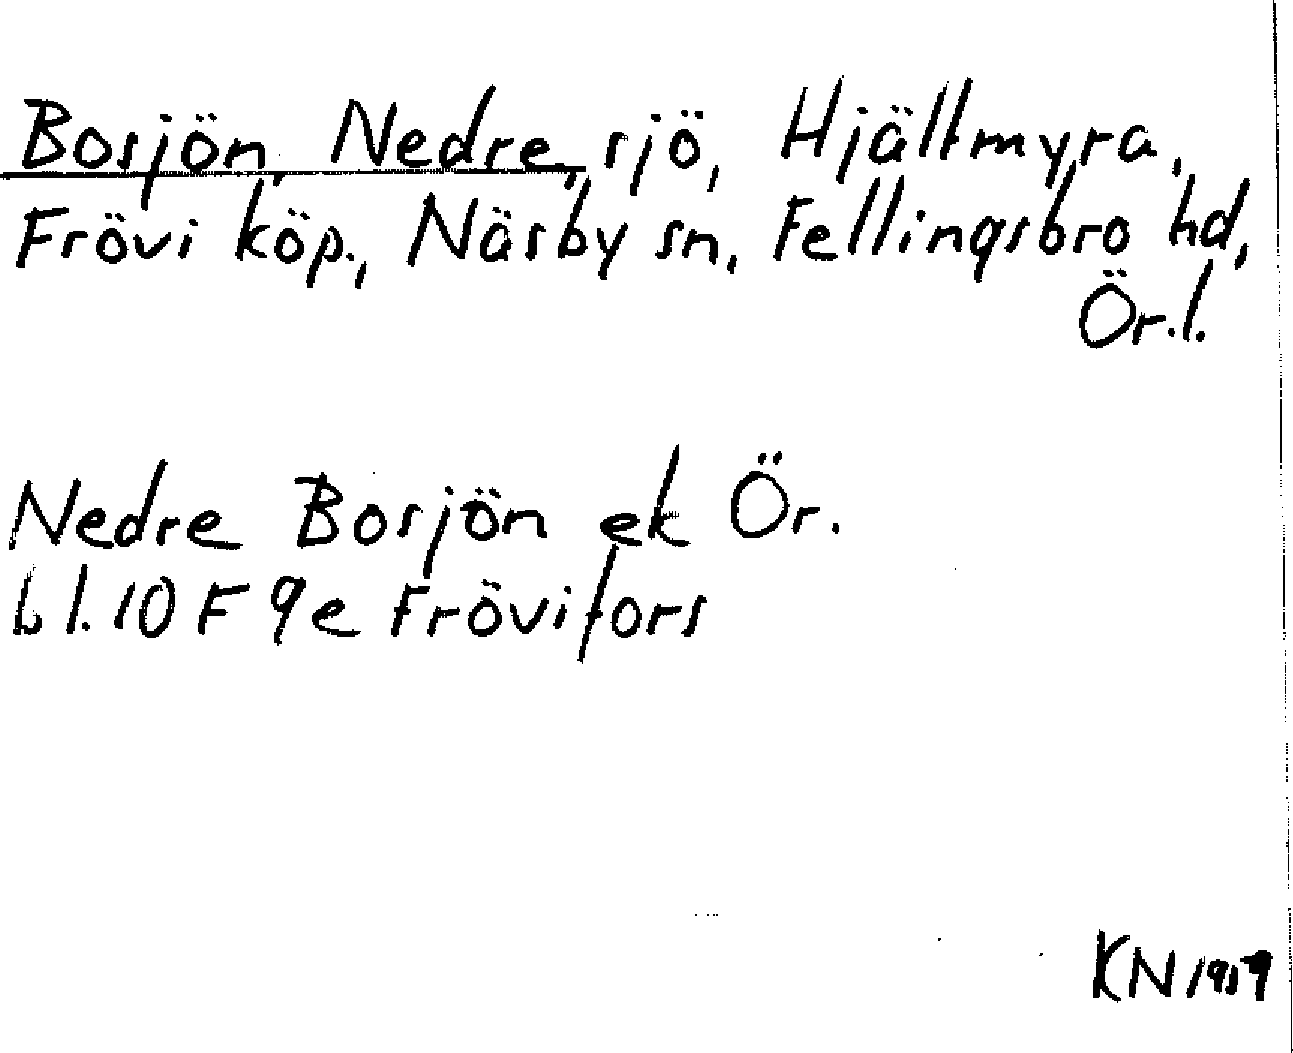 Borsjön, Nedre, sjö, Hjältmyra,
Frövi köp., Näsby sn, Fellingsbro hd,
Ör.l.
Nedre Borsjön ek Ör.
bl. 10 F 9e Frövifors
KN